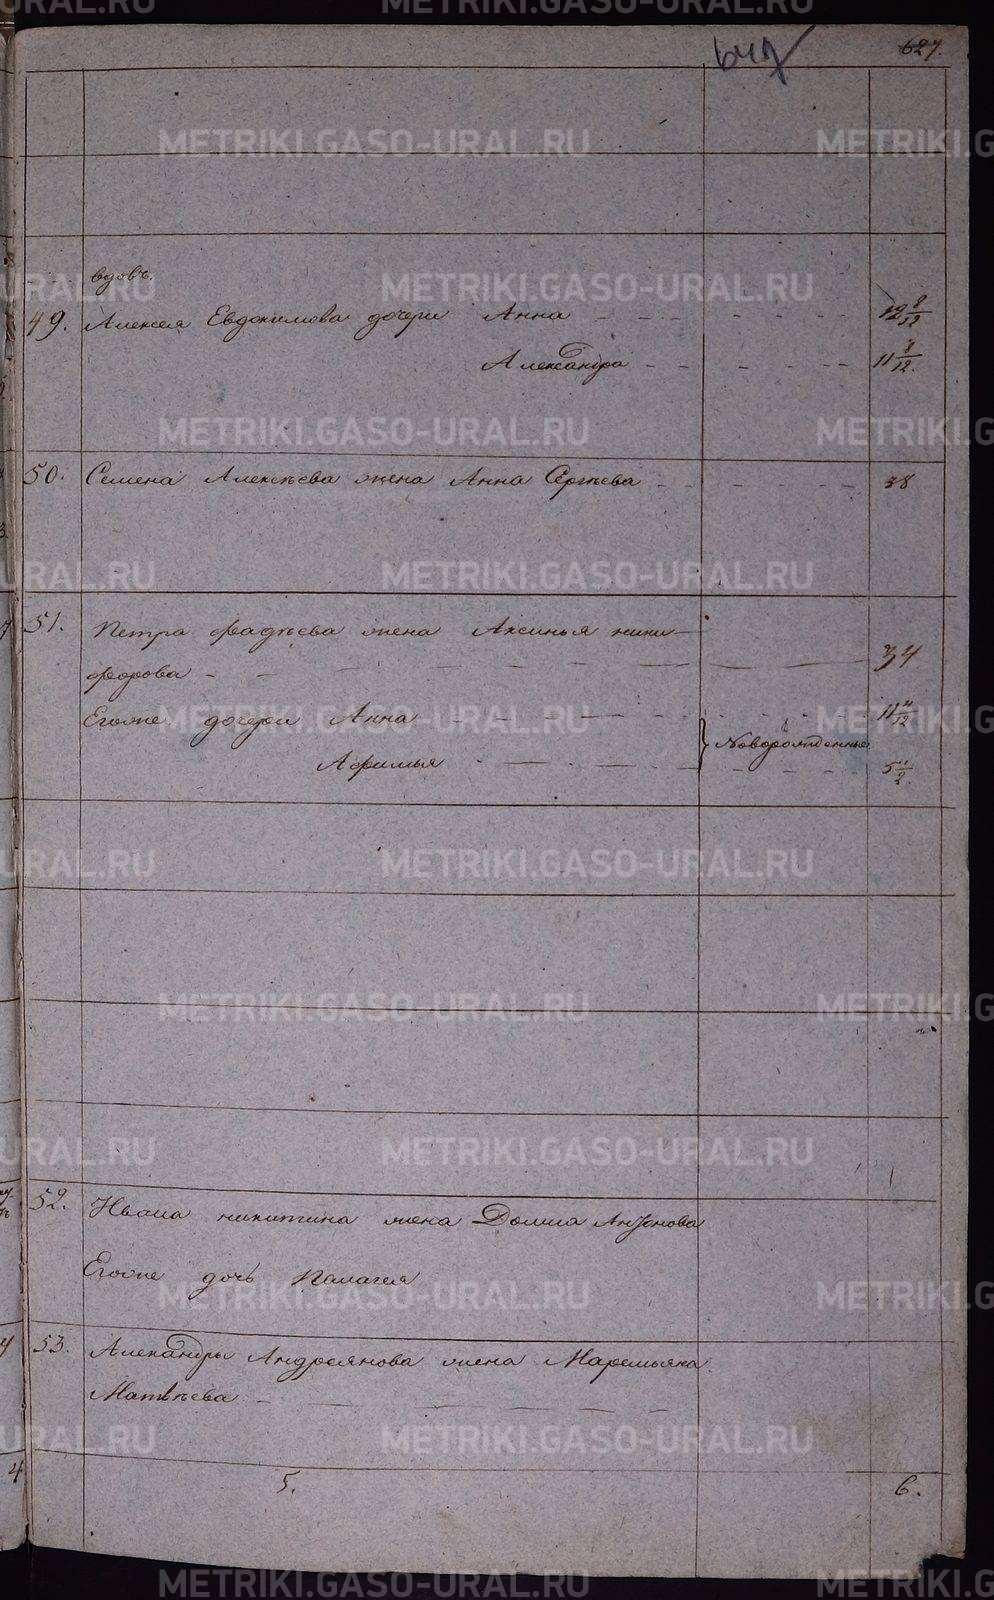 647
627.
вдовъ.
49. Алексея Евдокимова дочери Анна 12 8/12
Александра 11 3/12.
50. Семена Алексѣева жена Анна Сергѣева 38
51. Петра Фадѣева жена Аксинья Ники-
форова 34
Егоже дочери Анна 11 4/12
Афимья } Новорожденные 5 1/2.
52. Ивана Никитина жена Домна Антонова
Егоже дочь Пелагея
53. Александры Андреянова жена Маремьяна
Матвѣева
5. 6.
METRIKI.GASO-URAL.RU